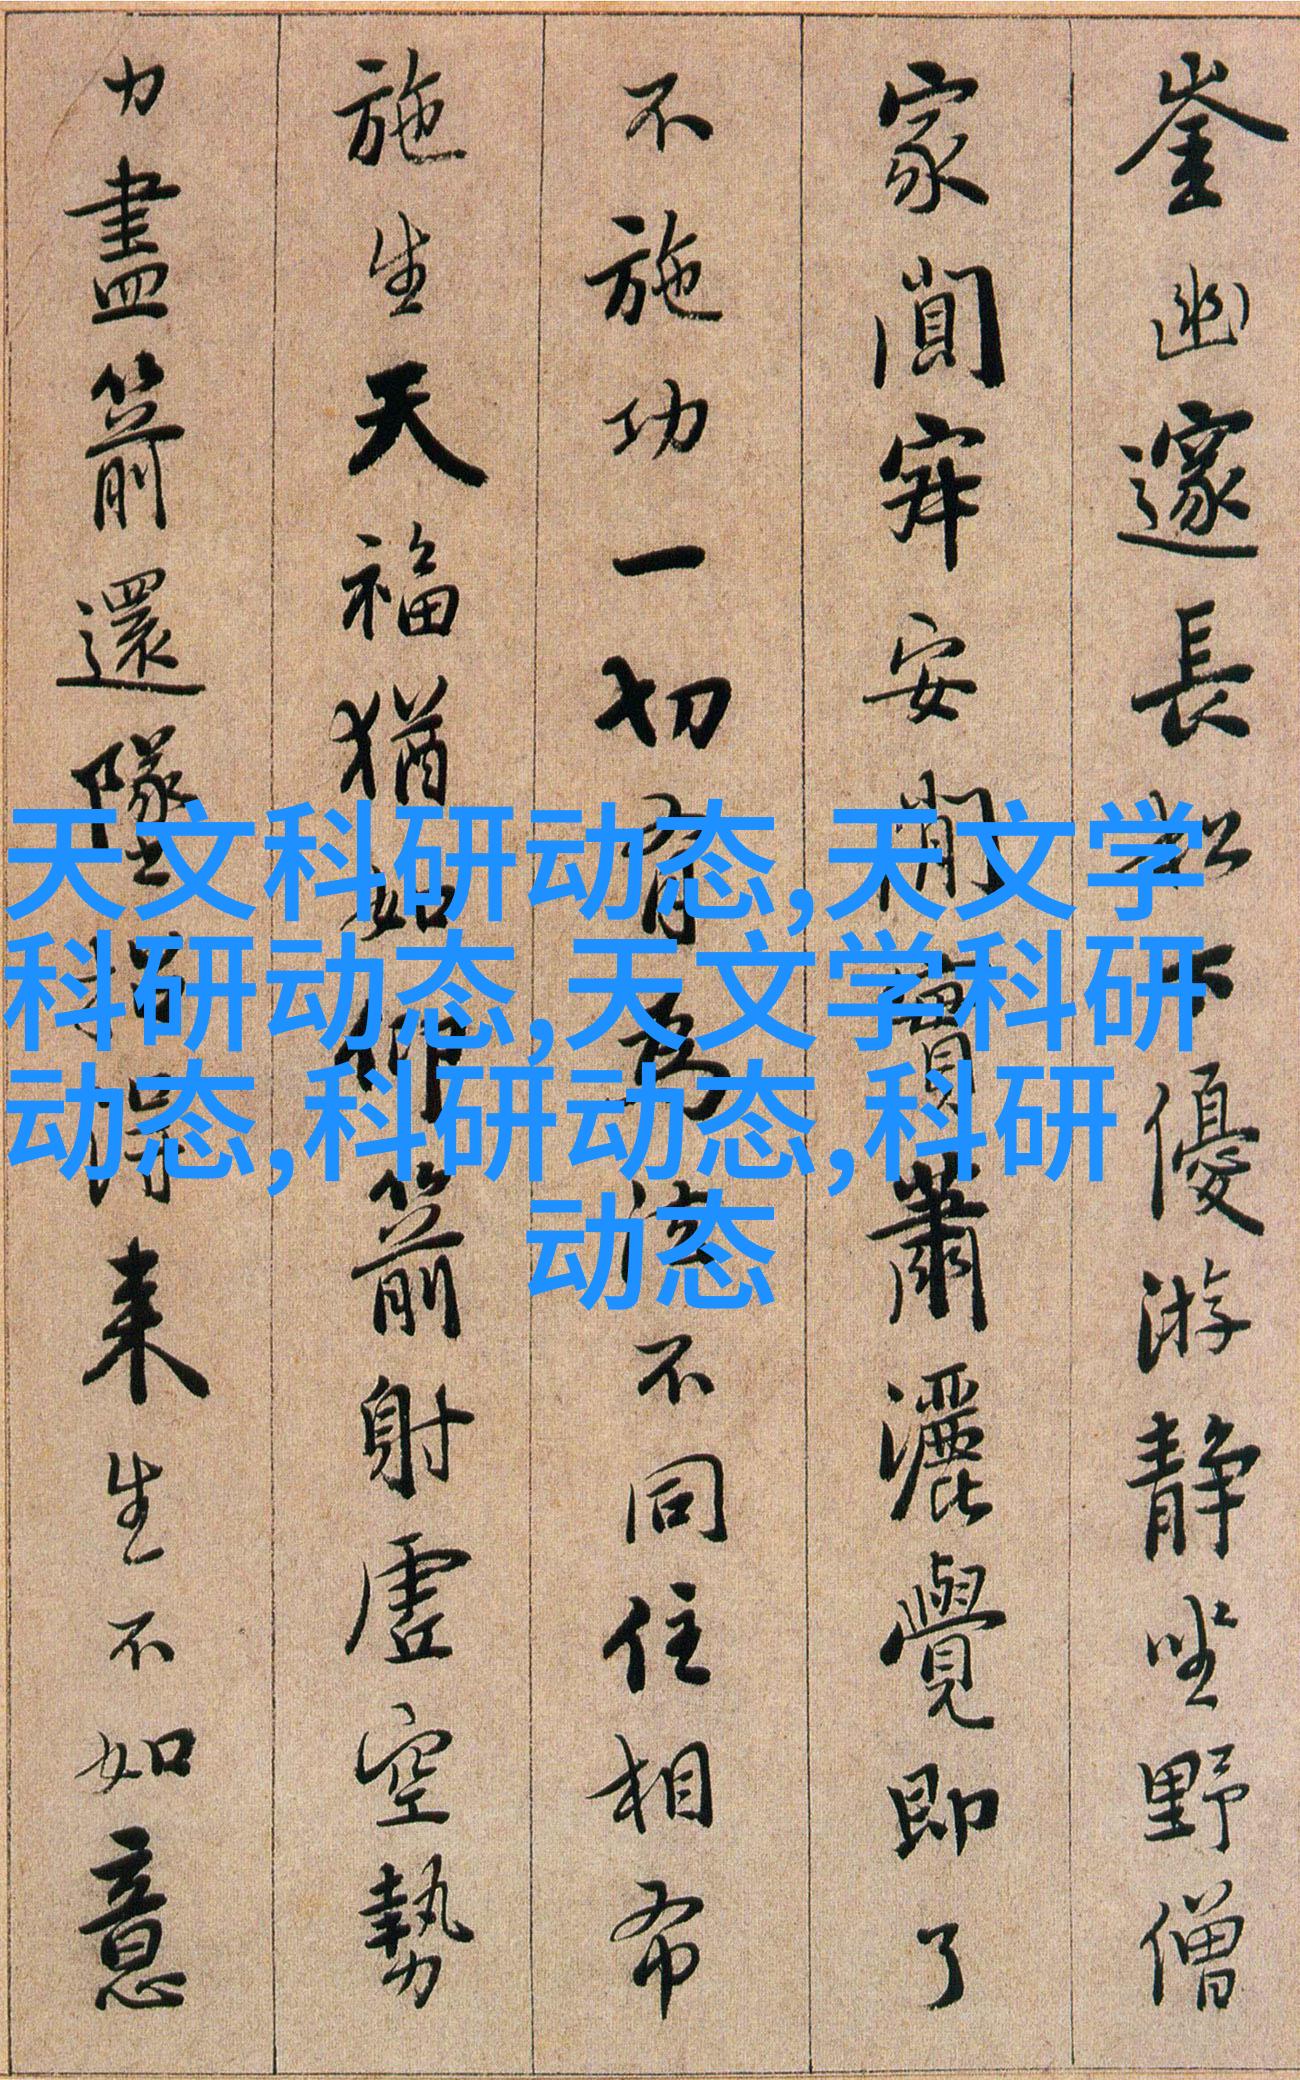 崟幽邃長松下優游静坐野僧
家闃寂安閑實蕭灑覺即了
不施功一切有為法不同住相布
施生天福猶如仰箭射虛空勢
力盡箭還墜招得来生不如意
天文科研动态,天文学
科研动态,天文学科研
动态,科研动态,科研
动态